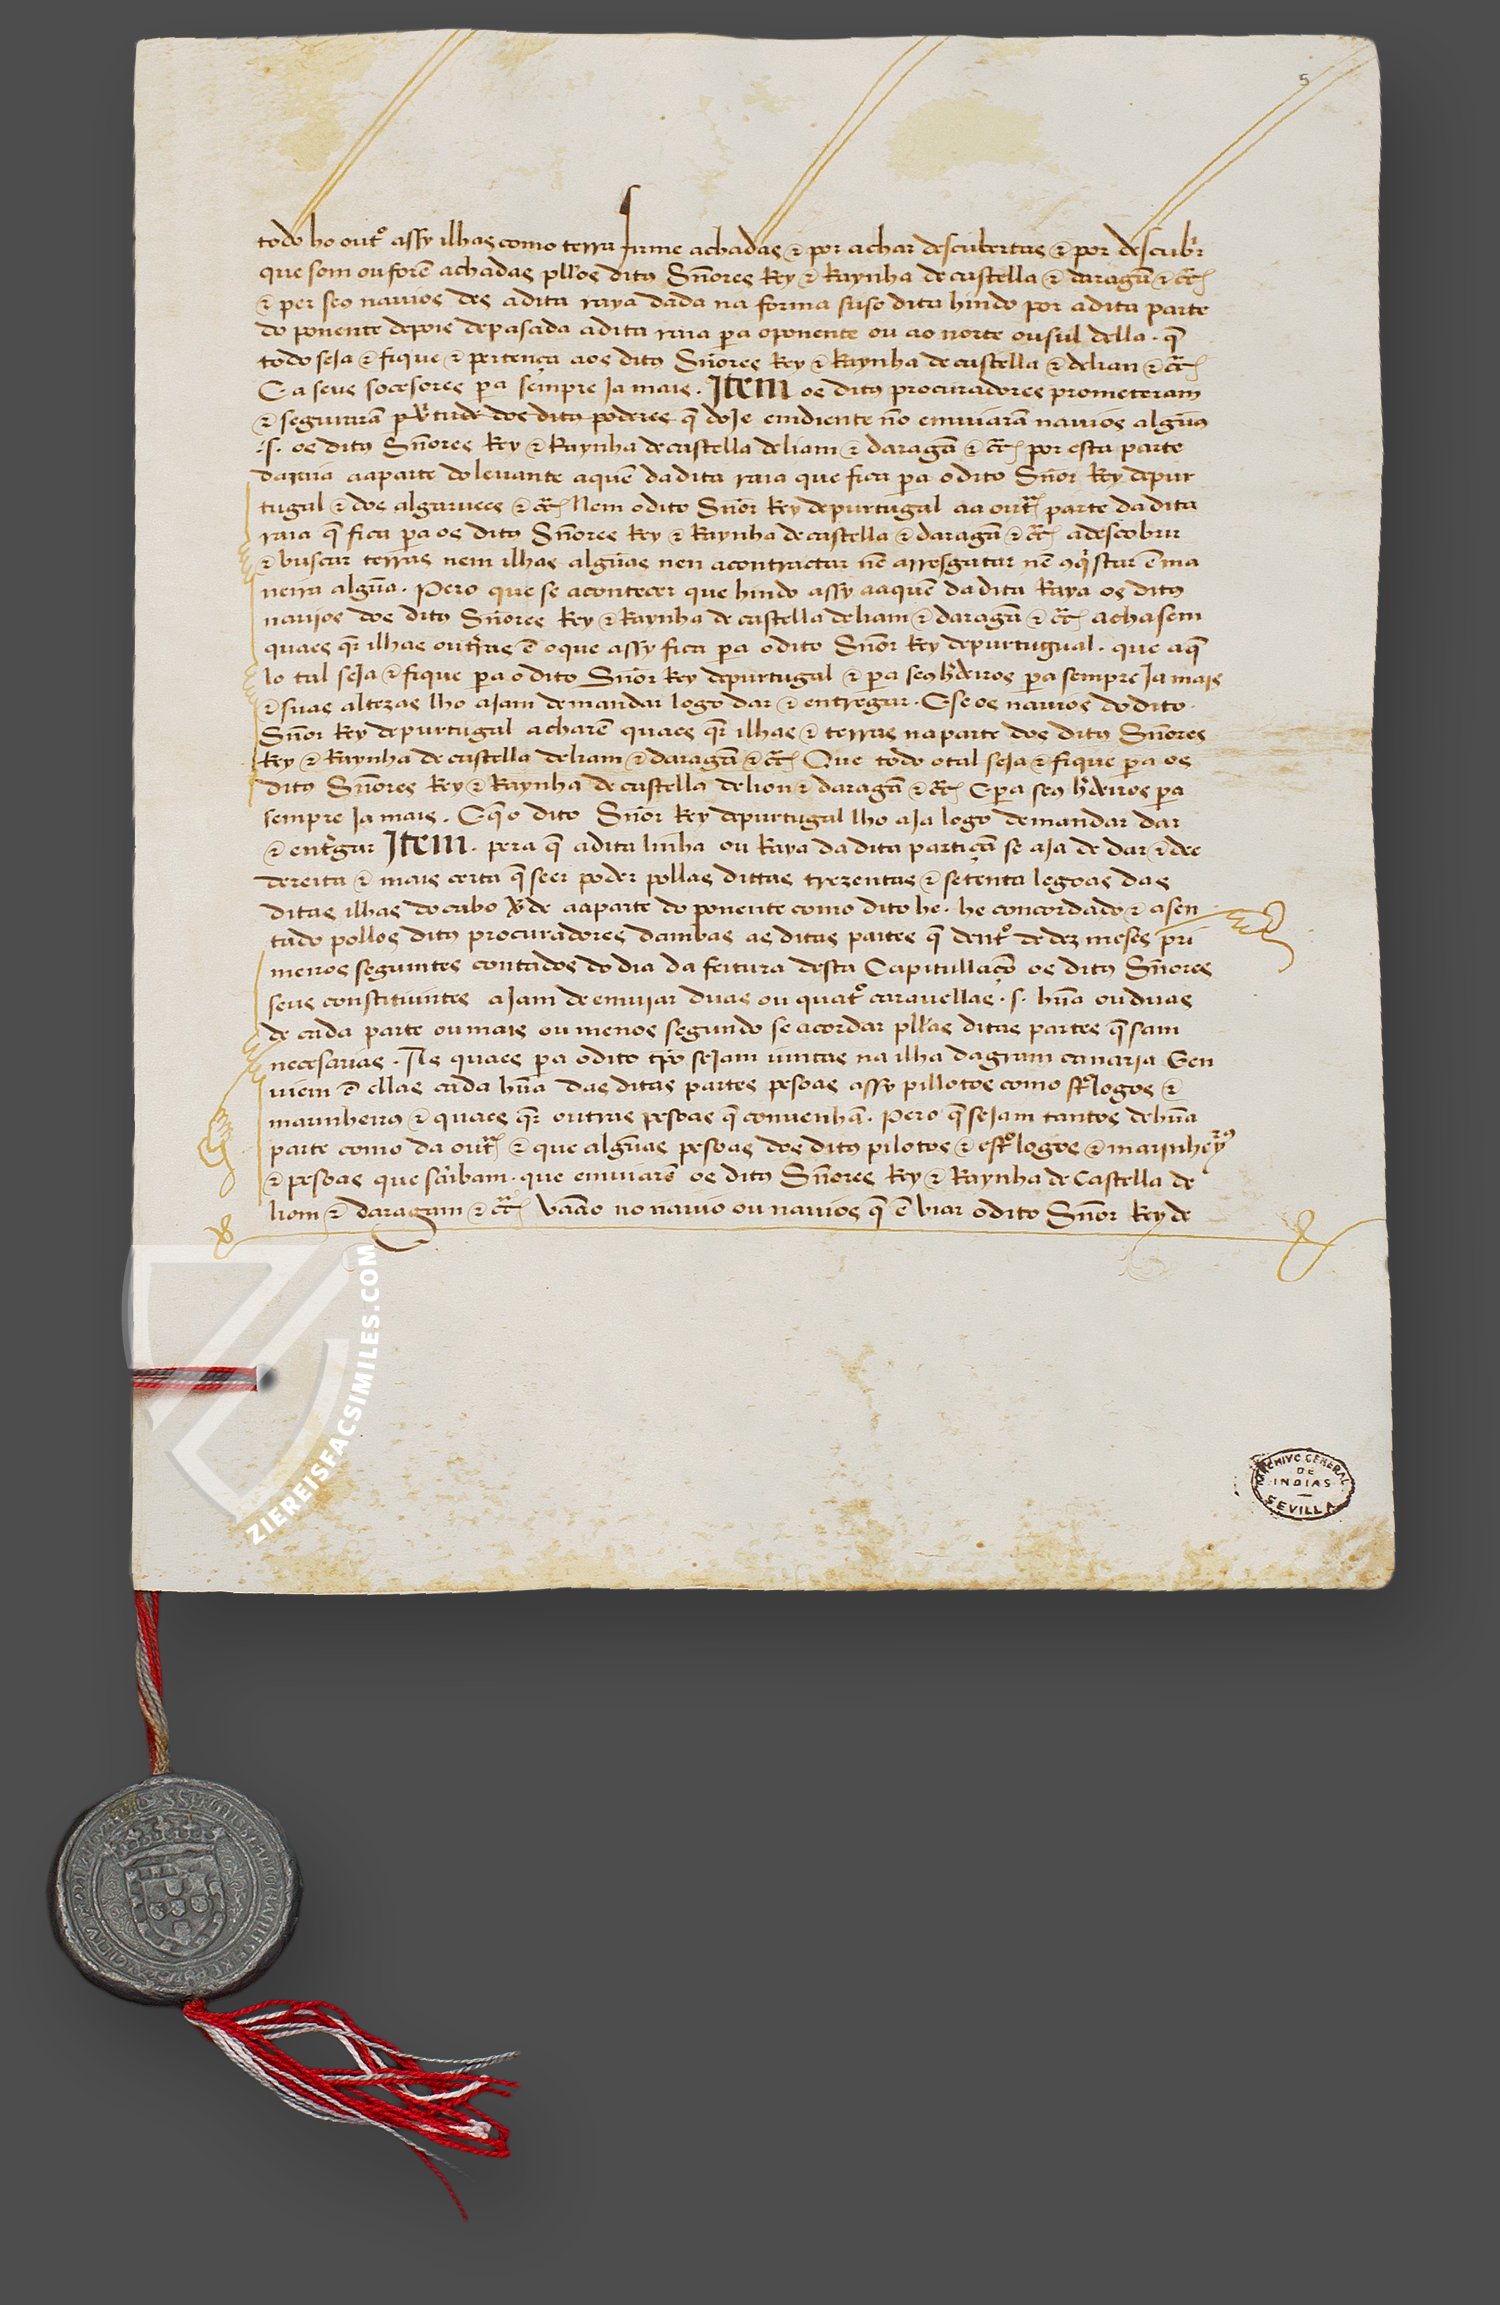 5
todo ho outº assy ilhas como terra firme achadas & por achar descubertas & por descubr
que som ou forẽ achadas pllos ditos Sñores Rey & Raynha de castella & daragã & cr̃
& per seo navios des adita raya dada na forma suso dita hindo por adita parte
do ponente depois de pasada adita raia pa oponente ou ao norte ou sul della . q̃
todo seja & fique & pertença aos ditos Sñores Rey & Raynha de castella & de lian & cr̃
E a seus socesores pa sempre Ja mais . Item os ditos procuradores prometeram
& segurarã p v̓tude dos ditos poderes q̃ doJe em diente nõ emviarã navios algũos
.s. os ditos Sñores Rey & Raynha de castella de liam & daragã & cr̃ por esta parte
da raia aaparte do levante aquẽ da dita raia que fica pa o dito Sñor Rey de pur
tugal & dos algarvees & cr̃ Nem o dito Sñor Rey de purtugal aa outr̃ parte da dita
raia q̃ fica pa os ditos Sñores Rey & Raynha de castella & daragã & cr̃ a descobrir
& buscar terras nem ilhas algũas nen a contractar nẽ arresgatar nẽ 9q̓star ẽ ma
neira algũa . Pero que se acontecer que hindo assy aaquẽ da dita Raya os ditos
navijos dos ditos Sñores Rey & Raynha de castella de liam & daragã & cr̃ achasem
quaes qr̃ ilhas ou tr̃ras ẽ o que assy fica pa o dito Sñor Rey de purtugual . que aq̃
lo tal seja & fique pa o dito Sñor Rey de purtugal & pa seus h̓deiros pa sempre Ja mais
& suas altezas lho aJam de mandar logo dar & entregar . E se os navios do dito .
Sñor Rey de purtugal acharẽ quaes qr̃ ilhas & terras na parte dos ditos Sñores
Rey & Raynha de castella de liam & daragã & cr̃ Que todo o tal seja & fique pa os
ditos Sñores Rey & Raynha de castella de lion & daragã & cr̃ E pa seus h̓deiros pa
sempre Ja mais . E q̃ o dito Sñor Rey de purtugal lho aJa logo de mandar dar
& ent̓gar Item . pera q̃ adita linha ou Raya da dita partiçã se aJa de dar & dee
dereita & mais certa q̃ seer poder pollas dittas trezentas & setenta legoas das
ditas ilhas do cabo v̓de aaparte do ponente como dito he . he concordado & asen
tado pollos ditos procuradores dambas as ditas partes q̃ dentº de dez meses pri
meiros seguintes contados do dia da feitura desta Capitullaçõ os ditos Sñores
seus constituintes aJam de emviar duas ou quatº caravellas . s . hũa ou duas
de cada parte ou mais ou menos segundo se acordar pllas ditas partes q̃ sam
necesarias . As quaes pa o dito tp̃o seJam iuntas na ilha da gram canaria E en
viem ẽ ellas cada hũa das ditas partes pesoas assy pillotos como st̓logos &
marinheiros & quaes qr̃ outras pesoas q̃ convenhã . Pero q̃ seJam tantos de hũa
parte como da outr̃ & que algũas pesoas dos ditos pilotos & estºlogos & marinheyros
& pesoas que saibam . que emviarẽ os ditos Sñores Rey & Raynha de Castella de
liom & daragam & cr̃ Vaão no navio ou navios q̃ ẽ viar o dito Sñor Rey de
ZIEREISFACSIMILES.COM
ARCHIVO GENERAL
DE
INDIAS
SEVILLA